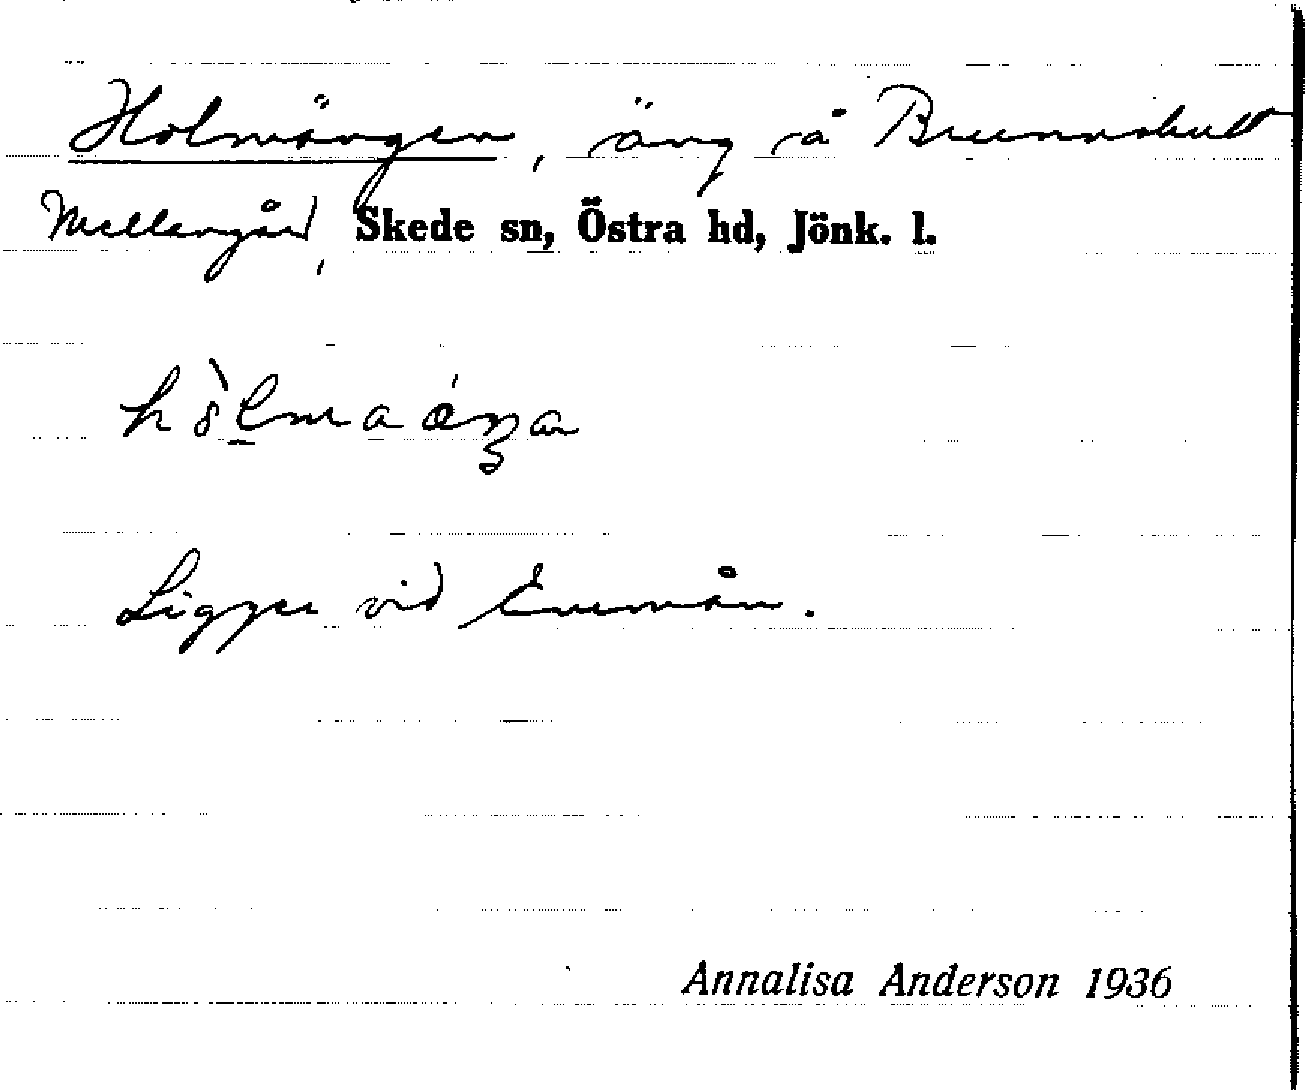 Holmängen, äng å Brunnshult
Mellangård, Skede sn, Östra hd, Jönk. l.
Ligger vid Emån.
Annalisa Anderson 1936